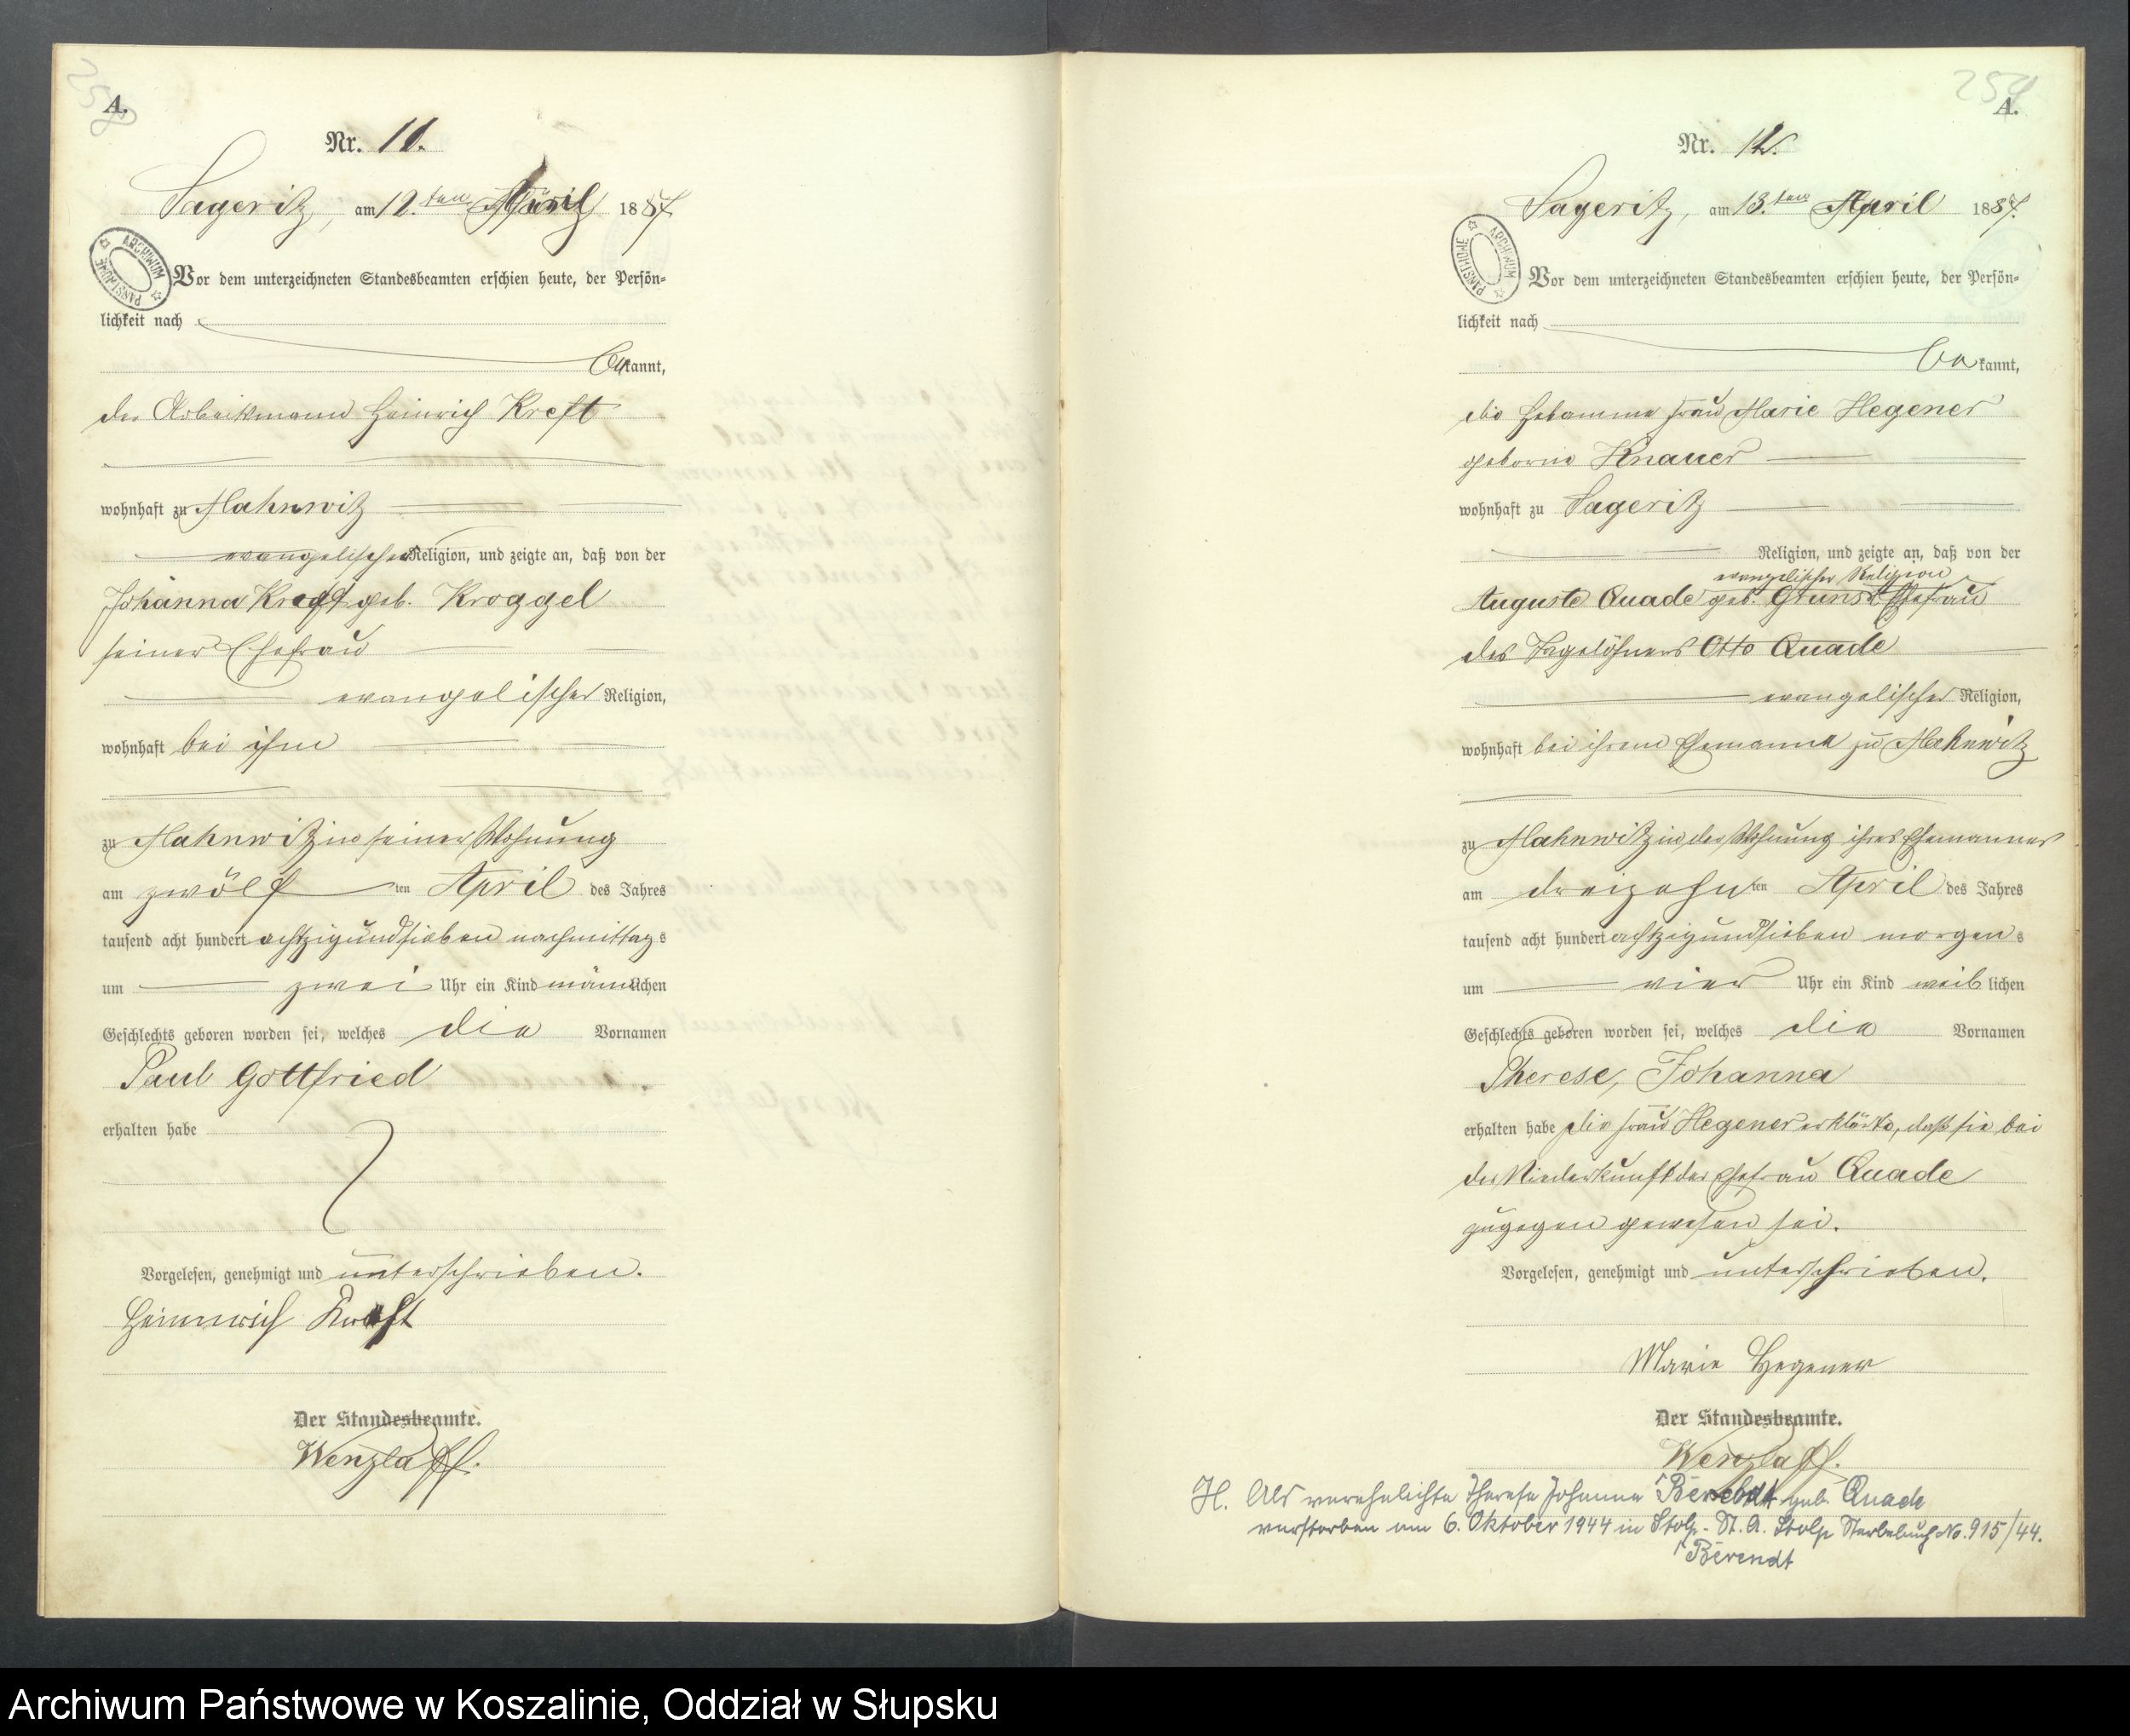 258
A.
Nr. 11.
Sageritz, am 12.ten April 1887.
ARCHIWUM PAŃSTWOWE
Vor dem unterzeichneten Standesbeamten erschien heute, der Persön-
lichkeit nach
bekannt,
der Arbeitsmann Heinrich Kreft
wohnhaft zu Mahnwitz
evangelischer Religion, und zeigte an, daß von der
Johanna Kreft geb. Kroggel
seiner Ehefrau
evangelischer Religion,
wohnhaft bei ihm
zu Mahnwitz in seiner Wohnung
am zwölf ten April des Jahres
tausend acht hundert achtzigundsieben nachmittags
um zwei Uhr ein Kind männlichen
Geschlechts geboren worden sei, welches die Vornamen
Paul Gottfried
erhalten habe
Vorgelesen, genehmigt und unterschrieben.
Heinrich Kreft
Der Standesbeamte.
Wenzlaff.
259
A.
Nr. 12.
Sageritz, am 13.ten April 1887.
ARCHIWUM PAŃSTWOWE
Vor dem unterzeichneten Standesbeamten erschien heute, der Persön-
lichkeit nach
bekannt,
die Hebamme Frau Marie Hegener
geborne Knauer
wohnhaft zu Sageritz
Religion, und zeigte an, daß von der
evangelischer Religion
Auguste Quade geb. Ehefrau
des Tagelöhners Otto Quade
evangelischer Religion,
wohnhaft bei ihrem Ehemanne zu Mahnwitz
zu Mahnwitz in der Wohnung ihres Ehemannes
am dreizehn ten April des Jahres
tausend acht hundert achtzigundsieben morgens
um vier Uhr ein Kind weiblichen
Geschlechts geboren worden sei, welches die Vornamen
Therese, Johanna
erhalten habe die Frau Hegener erklärte, daß sie bei
der Niederkunft der Ehefrau Quade
zugegen gewesen sei.
Vorgelesen, genehmigt und unterschrieben.
Marie Hegener
Der Standesbeamte.
Wenzlaff.
H. Als verehelichte Therese Johanna geb. Quade
verstorben am 6. Oktober 1944 in Stolp - St. A. Stolp Sterbebuch No. 915/44.
Berendt
Archiwum Państwowe w Koszalinie, Oddział w Słupsku